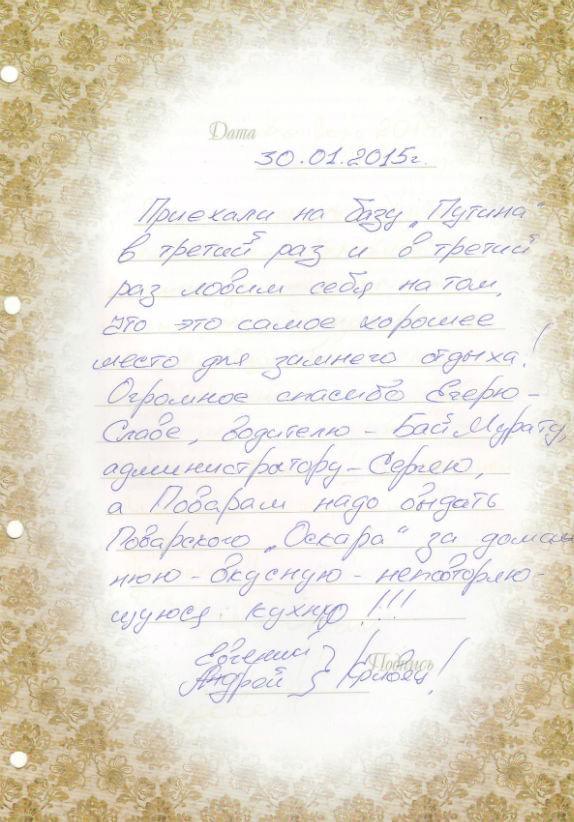 Дата
30.01.2015г.
Приехали на базу „Путина"
в третий раз и в третий
раз ловим себя на том,
что это самое хорошее
место для зимнего отдыха!
Огромное спасибо Егерю -
Славе, водителю - Бай Мурату,
администратору - Сергею,
а Поварам надо выдать
Поварского „Оскара" за домаш-
нюю - вкусную - неповторяю-
щуюся кухню!!!
Евгений
Андрей
Подпись